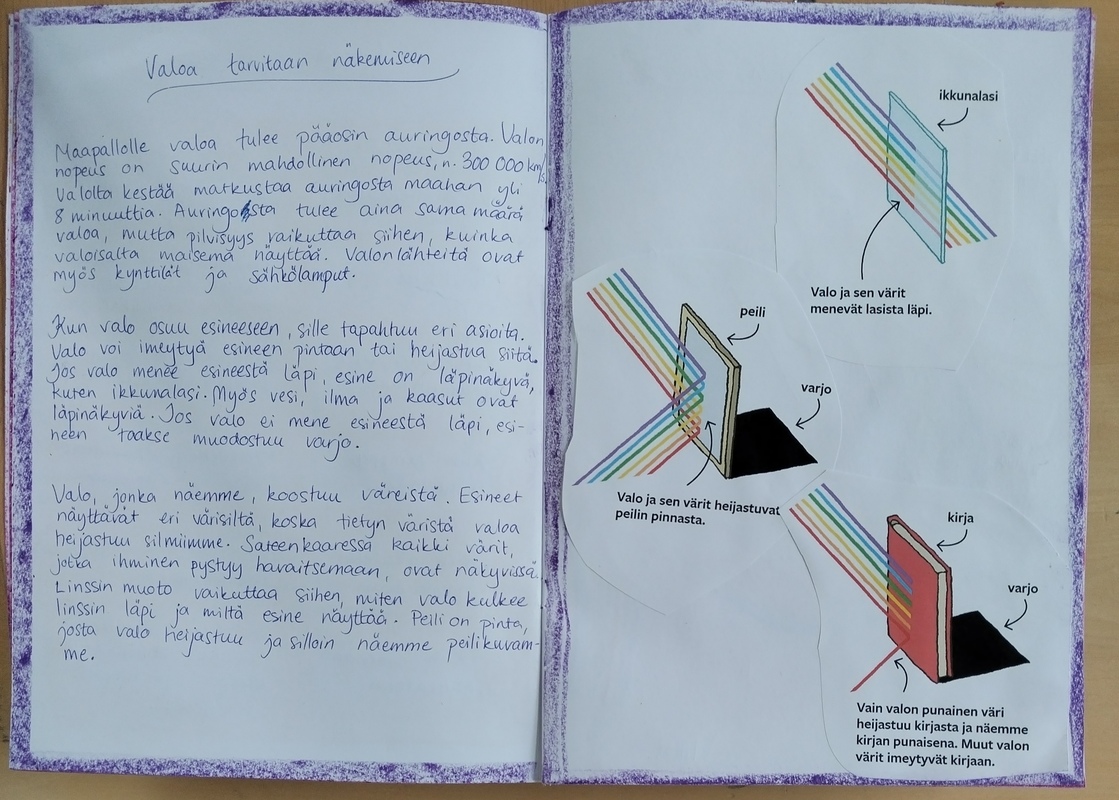 Valoa tarvitaan näkemiseen
Maapallolle valoa tulee pääosin auringosta. Valon
nopeus on suurin mahdollinen nopeus, n. 300 000 km/s.
Valolta kestää matkustaa auringosta maahan yli
8 minuuttia. Auringosta tulee aina sama määrä
valoa, mutta pilvisyys vaikuttaa siihen, kuinka
valoisalta maisema näyttää. Valonlähteitä ovat
myös kynttilät ja sähkölamput.
Kun valo osuu esineeseen, sille tapahtuu eri asioita.
Valo voi imeytyä esineen pintaan tai heijastua siitä.
Jos valo menee esineestä läpi, esine on läpinäkyvä,
kuten ikkunalasi. Myös vesi, ilma ja kaasut ovat
läpinäkyviä. Jos valo ei mene esineestä läpi, esi-
neen taakse muodostuu varjo.
Valo, jonka näemme, koostuu väreistä. Esineet
näyttävät eri värisiltä, koska tietyn väristä valoa
heijastuu silmiimme. Sateenkaaressa kaikki värit,
jotka ihminen pystyy havaitsemaan, ovat näkyvissä.
Linssin muoto vaikuttaa siihen, miten valo kulkee
linssin läpi ja miltä esine näyttää. Peili on pinta,
josta valo heijastuu ja silloin näemme peilikuvam-
me.
ikkunalasi
Valo ja sen värit
menevät lasista läpi.
peili
varjo
Valo ja sen värit heijastuvat
peilin pinnasta.
kirja
varjo
Vain valon punainen väri
heijastuu kirjasta ja näemme
kirjan punaisena. Muut valon
värit imeytyvät kirjaan.